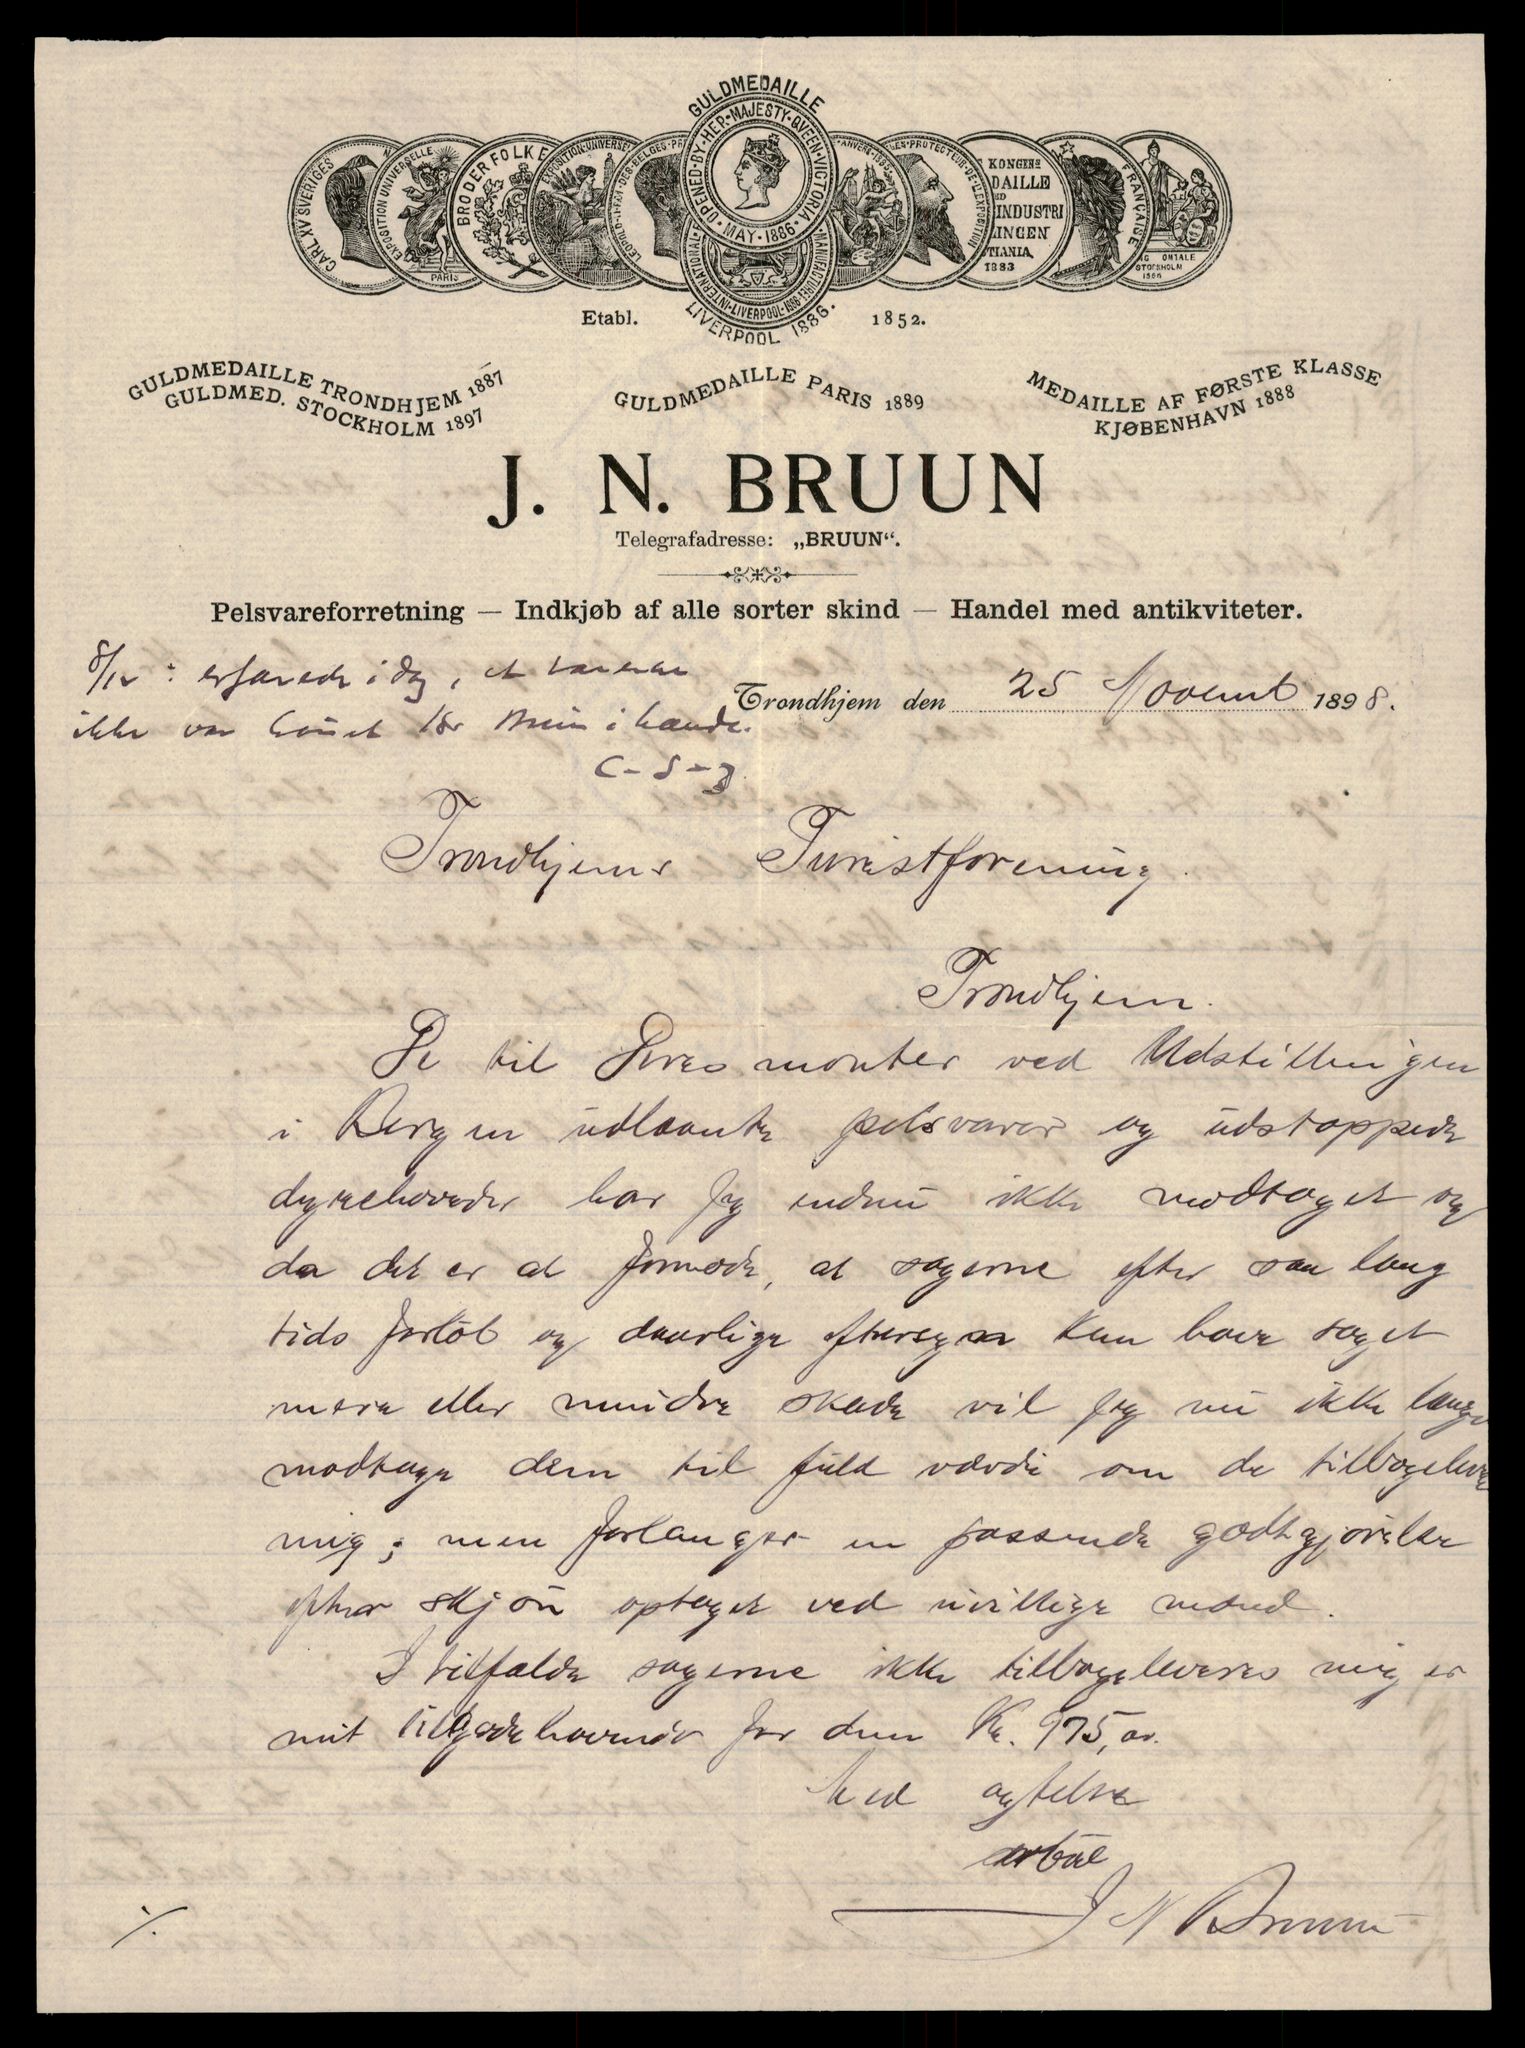 GULDMEDAILLE
CARL XV SVERIGES
EXPOSITION UNIVERSELLE
PARIS
BRODERFOLKE
EXPOSITION UNIVERSE
LEOPOLD II ROI DES BELGES PR
OPENED BY HER MAJESTY QVEEN VICTORIA
MAY 1886
INTERNATIONAL LIVERPOOL 1886 MANUFACTURE
ANVERS 1885
PROTECTEUR DE L'EXPOSITION
KONGENS
DAILLE
INDUSTRI
LINGEN
TIANIA
1883
FRANÇAISE
STOCKHOLM
1866
LIVERPOOL 1886.
Etabl. 1852.
GULDMEDAILLE TRONDHJEM 1887
GULDMED. STOCKHOLM 1897
GULDMEDAILLE PARIS 1889
MEDAILLE AF FØRSTE KLASSE
KJØBENHAVN 1888
J. N. BRUUN
Telegrafadresse: „BRUUN“.
Pelsvareforretning — Indkjøb af alle sorter skind — Handel med antikviteter.
8/12: erfarede idag, at varerne
ikke var Bruun i hænde.
Trondhjem den 25 Novemb 1898.
Trondhjems Turistforening.
Trondhjem.
De til Deres monter ved Udstillingen
i Bergen udlaante pelsvarer og udstoppede
dyrehoveder har jeg endnu ikke modtaget og
da det er at formode, at sagerne efter saa lang
tids forløb og daarlige eftersyn kan have taget
mere eller mindre skade vil jeg nu ikke længer
modtage dem til fuld værdi om de tilbageleveres
mig; men forlanger en passende godtgjørelse
efter skjøn optaget ved uvillige mænd.
I tilfælde sagerne ikke tilbageleveres mig er
mit tilgodehavende for dem Kr. 975,00.
Med agtelse
ærbød
J N Bruun
./.